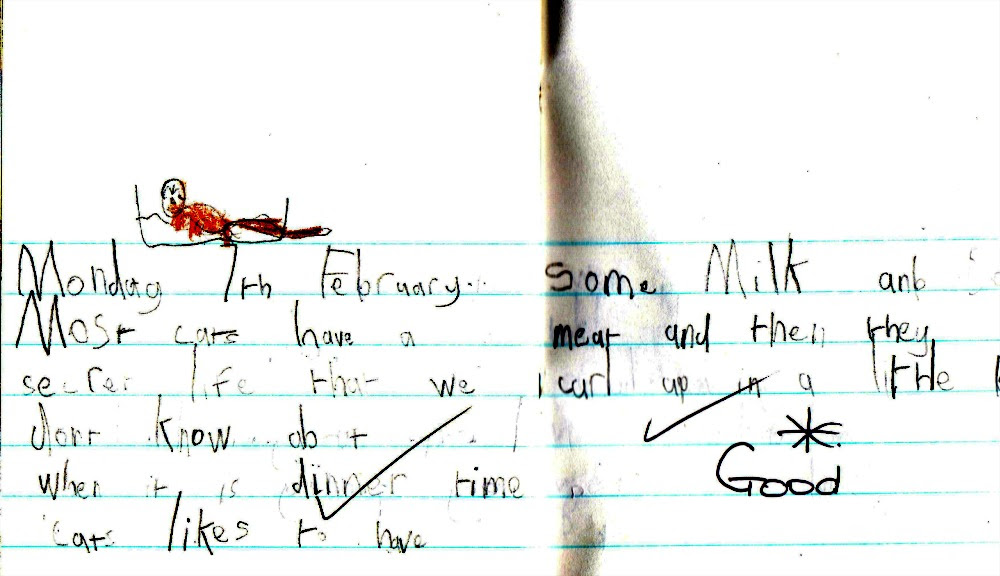 Monday 7th February.
Most cats have a
secret life that we
dont know abot
when it is dinner time
cats likes to have
some Milk anb
meat and then they
curl up in a little
Good